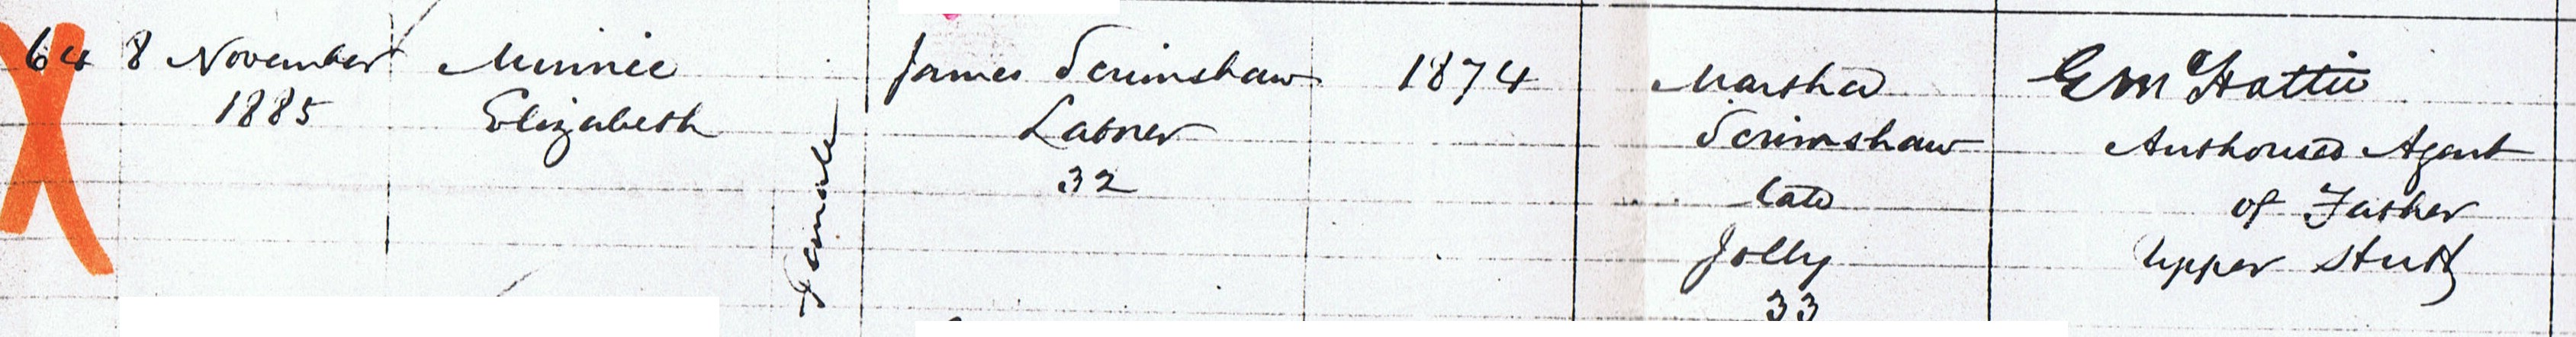 64 8 November 1885
Minnie
Elizabeth
Female
James Scrimshaw
Labrer
32
1874
Martha
Scrimshaw
late
Jolly
33
G M Hattie
Authorised Agent
of Father
Upper Sturt